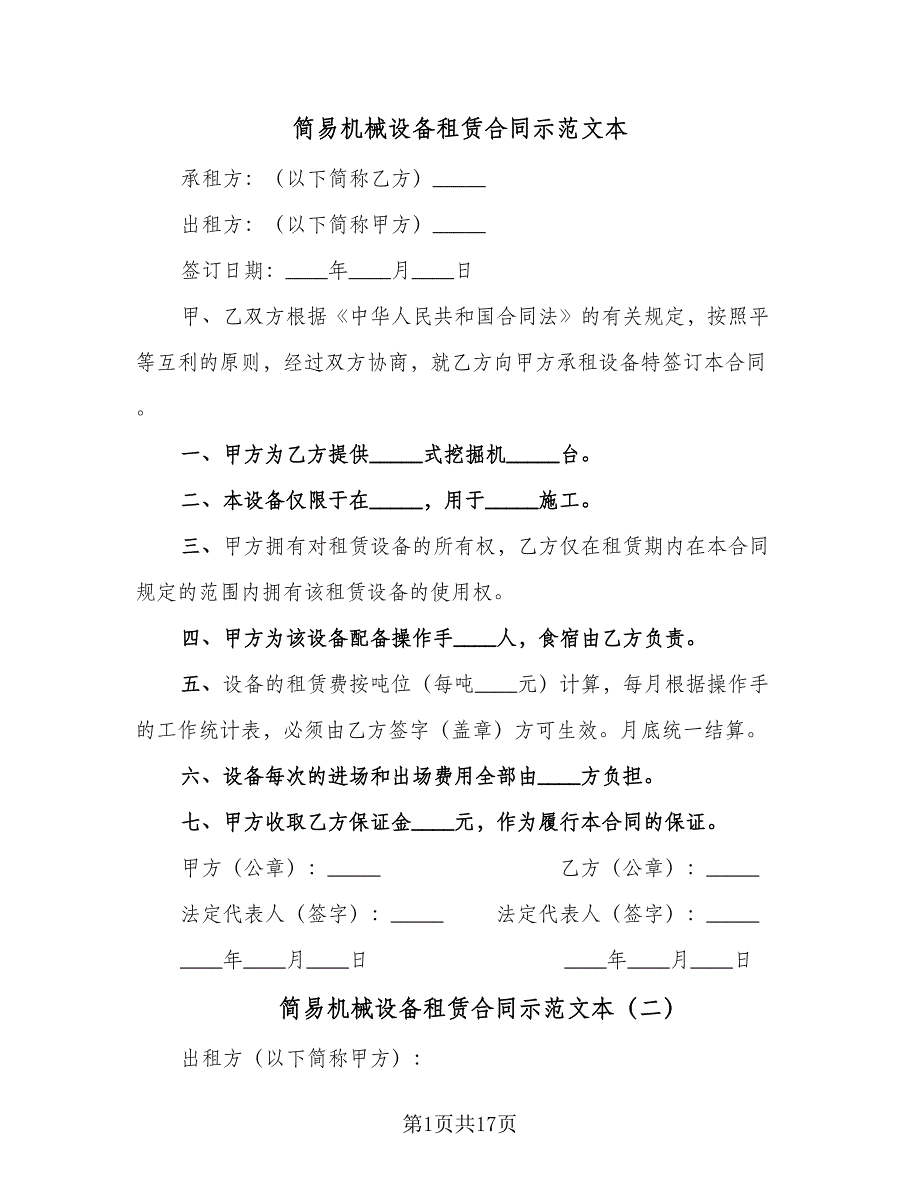 简易机械设备租赁合同示范文本
承租方：（以下简称乙方）_____
出租方：（以下简称甲方）_____
签订日期：____年____月____日
甲、乙双方根据《中华人民共和国合同法》的有关规定，按照平
等互利的原则，经过双方协商，就乙方向甲方承租设备特签订本合同
。
一、甲方为乙方提供_____式挖掘机_____台。
二、本设备仅限于在_____，用于_____施工。
三、甲方拥有对租赁设备的所有权，乙方仅在租赁期内在本合同
规定的范围内拥有该租赁设备的使用权。
四、甲方为该设备配备操作手____人，食宿由乙方负责。
五、设备的租赁费按吨位（每吨____元）计算，每月根据操作手
的工作统计表，必须由乙方签字（盖章）方可生效。月底统一结算。
六、设备每次的进场和出场费用全部由____方负担。
七、甲方收取乙方保证金____元，作为履行本合同的保证。
甲方（公章）：_____ 乙方（公章）：_____
法定代表人（签字）：_____ 法定代表人（签字）：_____
____年____月____日 ____年____月____日
简易机械设备租赁合同示范文本（二）
出租方（以下简称甲方）：
第1页共17页